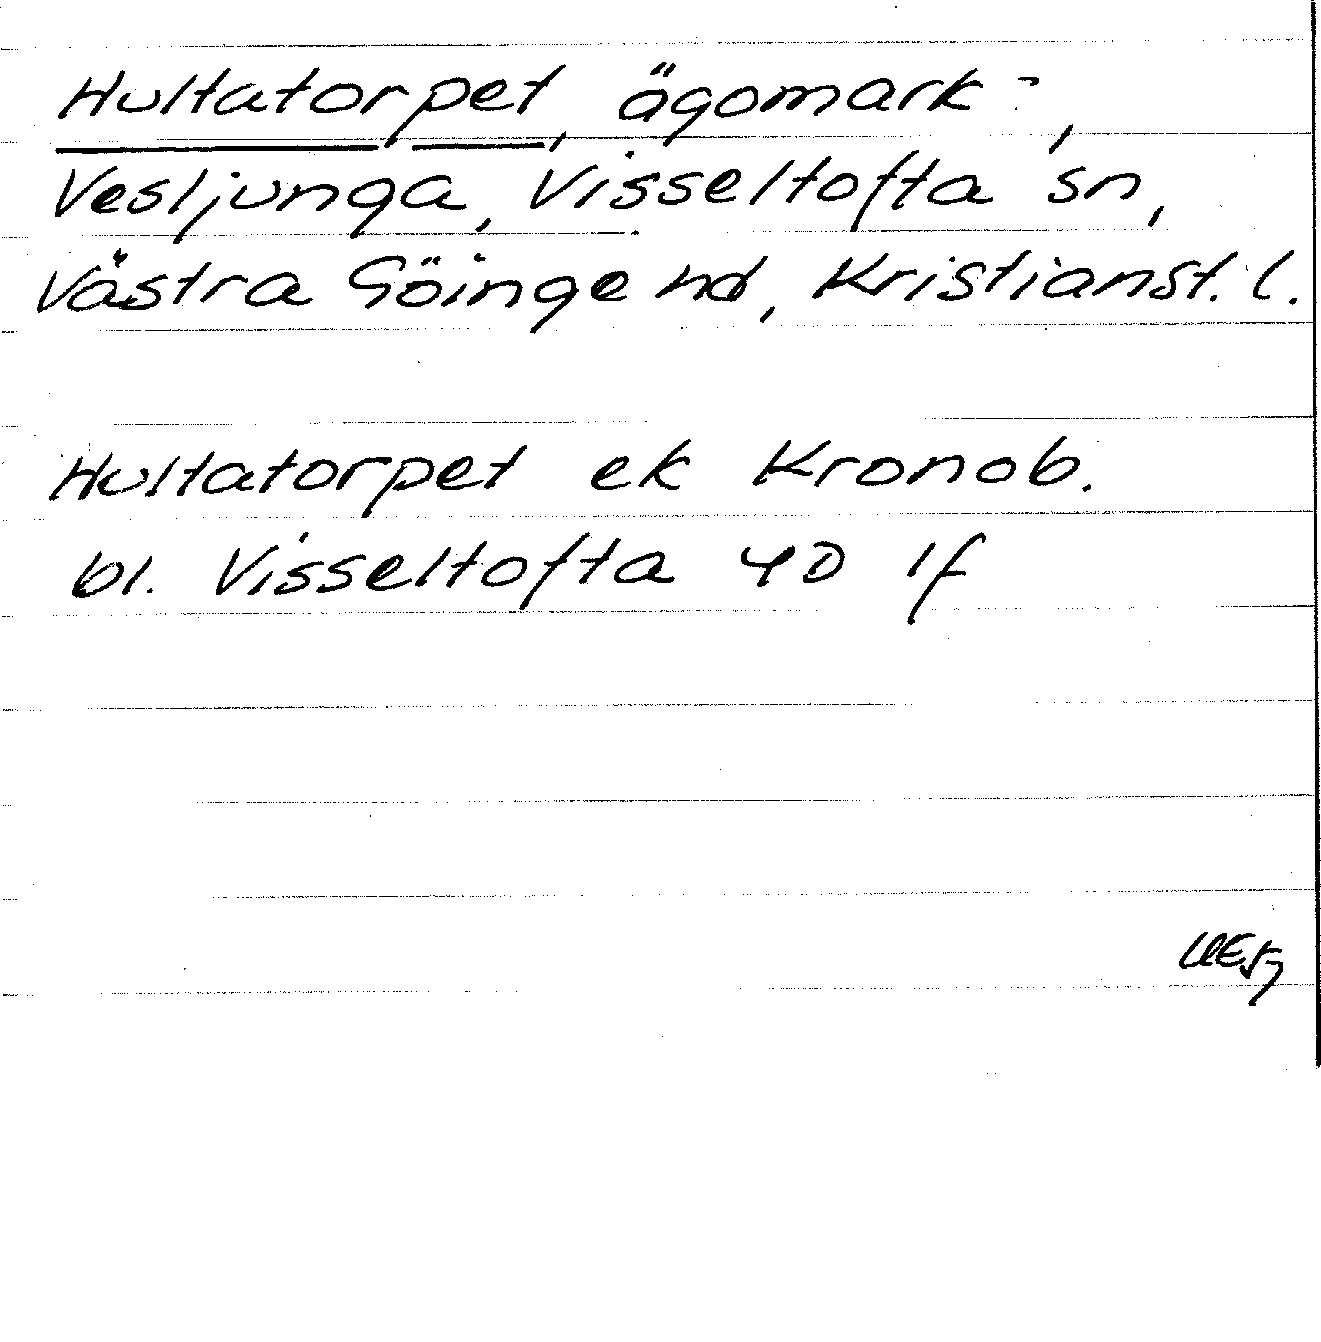 Hultatorpet, ägomark?,
Vesljunga, Visseltofta sn,
Västra Göinge hd, Kristianst. l.
Hultatorpet ek Kronob.
bl. Visseltofta 4D 1f